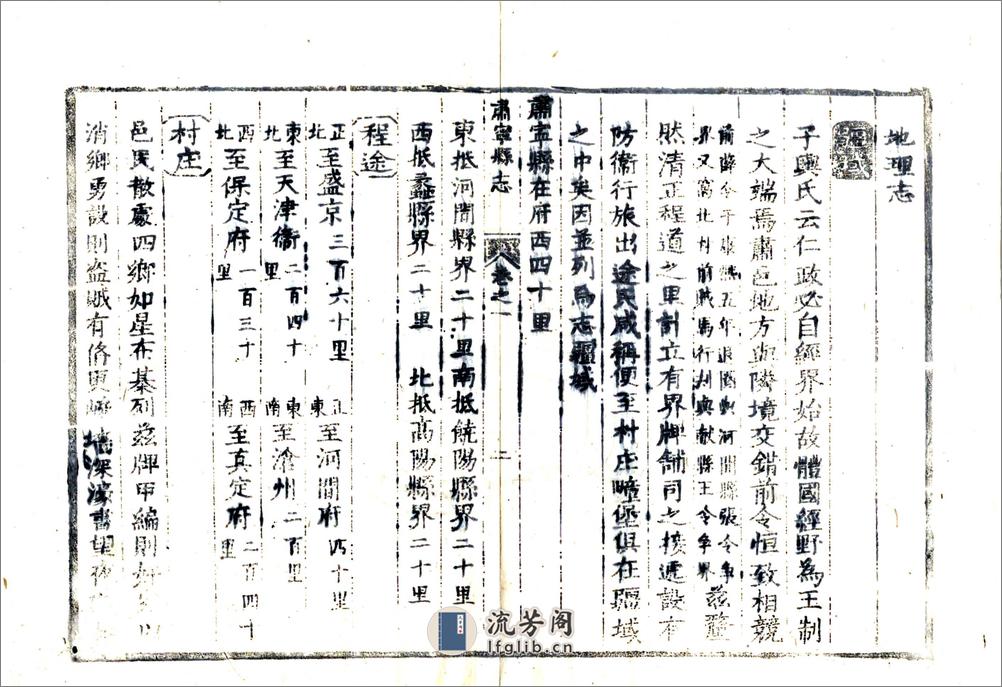 地理志
疆域
子輿氏云仁政必自經界始故體國經野為王制
之大端焉肅邑地方與隣境交錯前令恒致相競
前薛令于五年河間縣張令爭
界又窩北村前戝馬行刋與献縣王令爭界
兹釐
然清正程道之里計立有界牌舖司之接遞設有
防衞行旅出途民咸稱便至村庄疃堡俱在疆域
之中矣因並列為志疆域
肅寧縣在府西四十里
肅寧縣志
卷之一
二
東抵河間縣界二十里南抵饒陽縣界二十里
西抵蠡縣界二十里 北抵高陽縣界二十里
程途
正北至盛京三百六十里 正東至河間府四十里
東北至天津衞二百四十里 東南至滄州二百里
西北至保定府一百三十里 西南至真定府二百四十里
村庄
邑民散處四鄉如星布棊列兹牌甲編則奸
消鄉勇設則盜賊有俻更 墙深濠書望
流芳阁
lfglib.cn